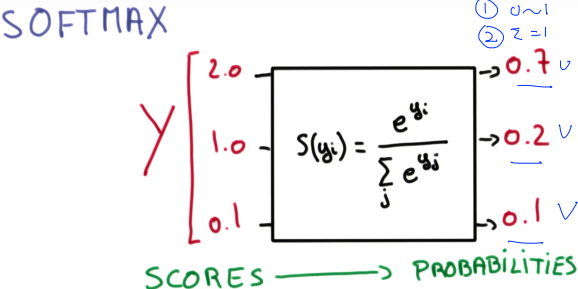 SOFTMAX
① 0~1
② Σ=1
Y
2.0
1.0
0.1
S(yᵢ) = e^{yᵢ} / Σ_j e^{yⱼ}
→ 0.7 ∪
→ 0.2 ∨
→ 0.1 ∨
SCORES → PROBABILITIES